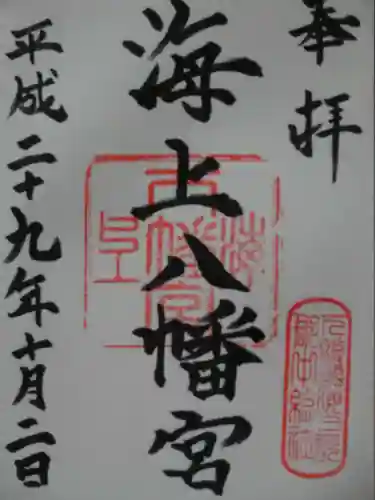 奉拝
海上八幡宮
平成二十九年十月二日